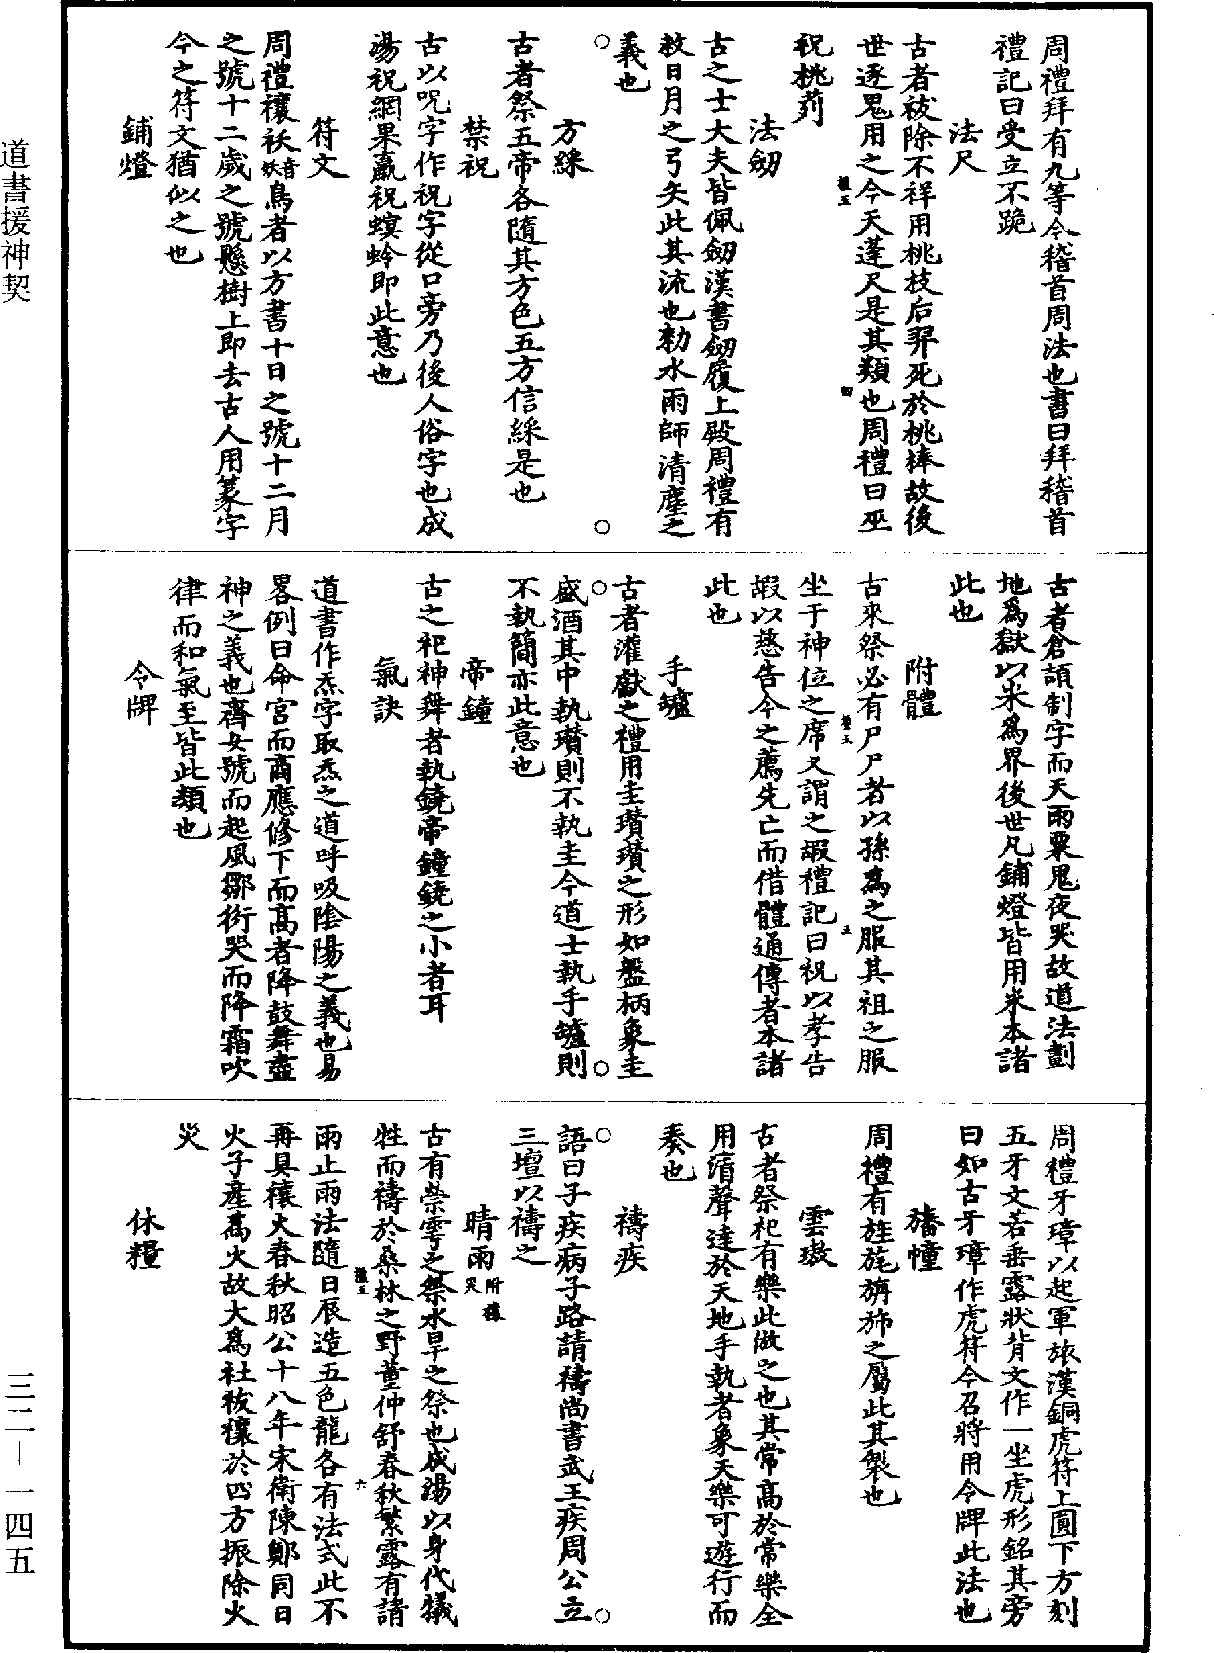 周禮拜有九等今稽首周法也書曰拜稽首
禮記曰受立不跪
法尺
古者祓除不祥用桃枝后羿死於桃棒故後
世逐鬼用之今天蓬尺是其類也周禮曰巫
祝桃茢
法劒
古之士大夫皆佩劒漢書劒履上殿周禮有
救日月之弓矢此其流也勑水雨師清塵之
義也
方綵
古者祭五帝各隨其方色五方信綵是也
禁祝
古以呪字作祝字從口旁乃後人俗字也成
湯祝網果蠃祝螟蛉即此意也
符文
周禮禳祅音妖鳥者以方書十日之號十二月
之號十二歲之號懸樹上即去古人用篆字
今之符文猶似之也
鋪燈
古者倉頡制字而天雨粟鬼夜哭故道法劃
地為獄以米為界後世凡鋪燈皆用米本諸
此也
附體
古來祭必有尸尸者以孫為之服其祖之服
坐于神位之席又謂之嘏禮記曰祝以孝告
嘏以慈告今之薦先亡而借體通傳者本諸
此也
手爐
古者灌獻之禮用圭瓚瓚之形如盤柄象圭
盛酒其中執瓚則不執圭今道士執手爐則
不執簡亦此意也
帝鐘
古之祀神舞者執鐃帝鐘鐃之小者耳
氣訣
道書作炁字取炁之道呼吸陰陽之義也易
畧例曰命宮而商應修下而高者降鼓舞盡
神之義也齊女號而起風鄒衍哭而降霜吹
律而和氣至皆此類也
令牌
周禮牙璋以起軍旅漢銅虎符上圓下方刻
五牙文若垂露狀背文作一坐虎形銘其旁
曰如古牙璋作虎符今召將用令牌此法也
旛幢
周禮有旌旄旃斾之屬此其製也
雲璈
古者祭祀有樂此倣之也其常高於常樂全
用清聲達於天地手執者象天樂可遊行而
奏也
禱疾
語曰子疾病子路請禱尚書武王疾周公立
三壇以禱之
晴雨附禳災
古有禜雩之祭水旱之祭也成湯以身代犧
牲而禱於桑林之野董仲舒春秋繁露有請
雨止雨法隨日辰造五色龍各有法式此不
再具禳火春秋昭公十八年宋衛陳鄭同日
火子產為火故大為社祓禳於四方振除火
災
休糧
道書援神契
三二—一四五